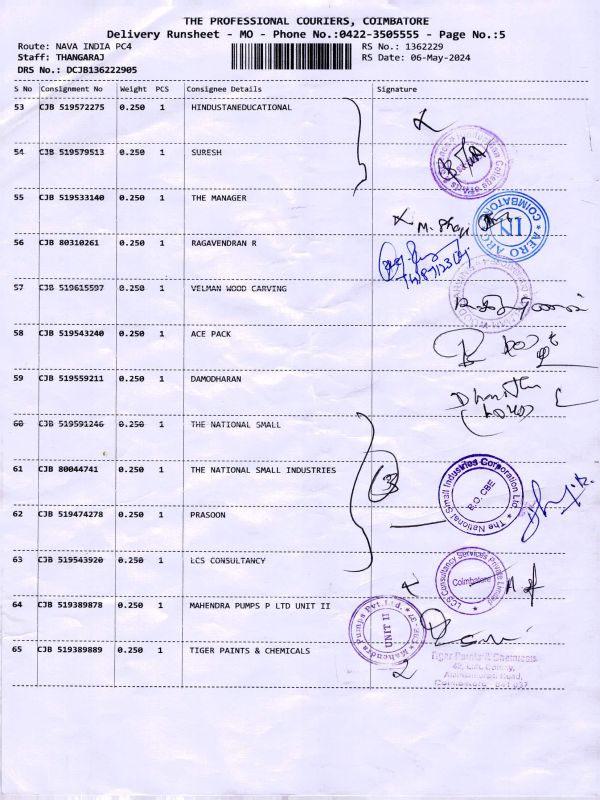 THE PROFESSIONAL COURIERS, COIMBATORE
Delivery Runsheet - MO - Phone No.:0422-3505555 - Page No.:5
Route: NAVA INDIA PC4 RS No.: 1362229
Staff: THANGARAJ RS Date: 06-May-2024
DRS No.: DCJB136222905
S No Consignment No Weight PCS Consignee Details Signature
53 CJB 519572275 0.250 1 HINDUSTANEDUCATIONAL
54 CJB 519579513 0.250 1 SURESH
55 CJB 519533140 0.250 1 THE MANAGER
AERO ARC
IN
COIMBATORE
56 CJB 80310261 0.250 1 RAGAVENDRAN R
57 CJB 519615597 0.250 1 VELMAN WOOD CARVING
58 CJB 519543240 0.250 1 ACE PACK
59 CJB 519559211 0.250 1 DAMODHARAN
60 CJB 519591246 0.250 1 THE NATIONAL SMALL
61 CJB 80044741 0.250 1 THE NATIONAL SMALL INDUSTRIES
3
The National Small Industries Corporation Ltd
B.O. CBE
62 CJB 519474278 0.250 1 PRASOON
63 CJB 519543920 0.250 1 LCS CONSULTANCY
LCS Consultancy Services Private Limited
Coimbatore
64 CJB 519389878 0.250 1 MAHENDRA PUMPS P LTD UNIT II
Mahendra Pumps Pvt. Ltd. CBE - 37
UNIT II
65 CJB 519389889 0.250 1 TIGER PAINTS & CHEMICALS
2
Tiger Paints & Chemicals